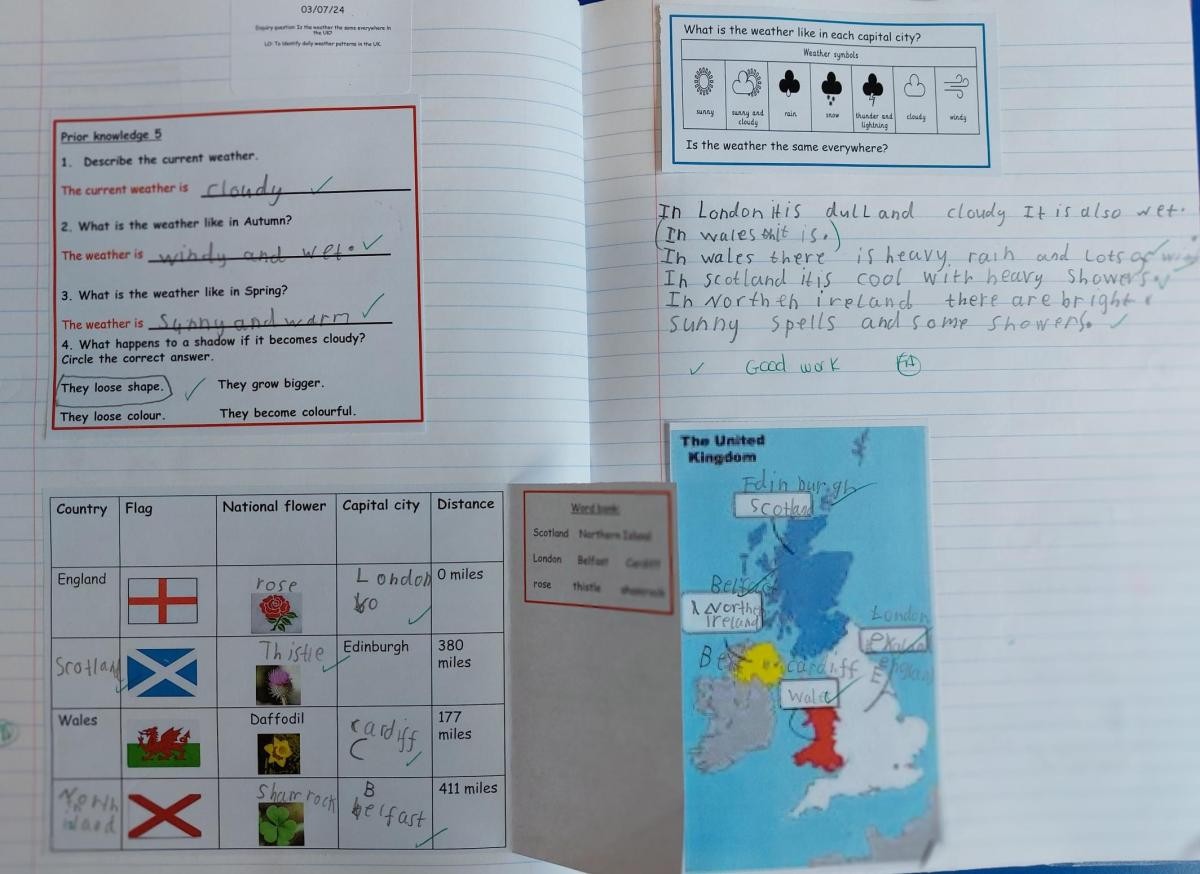 03/07/24
Enquiry question: Is the weather the same everywhere in the UK?
LO: To identify daily weather patterns in the UK.
Prior knowledge 5
1. Describe the current weather.
The current weather is cloudy
2. What is the weather like in Autumn?
The weather is windy and wet.
3. What is the weather like in Spring?
The weather is Sunny and warm
4. What happens to a shadow if it becomes cloudy?
Circle the correct answer.
They loose shape. They grow bigger.
They loose colour. They become colourful.
Country Flag National flower Capital city Distance
England rose London 0 miles
Scotland Thistle Edinburgh 380 miles
Wales Daffodil Cardiff 177 miles
North island Shamrock Belfast 411 miles
Word bank
Scotland Northern Island
London Belfast Cardiff
rose thistle shamrock
What is the weather like in each capital city?
Weather symbols
sunny
sunny and cloudy
rain
snow
thunder and lightning
cloudy
windy
Is the weather the same everywhere?
In London it is dull and cloudy It is also wet.
(In wales it is.)
In wales there is heavy rain and Lots of
In scotland it is cool with heavy showers.
In North eh ireland there are bright
sunny spells and some showers.
Good work
The United Kingdom
Edinburgh
Scotland
Belfast
Northe
Ireland
London
England
Be
Cardiff
Wales